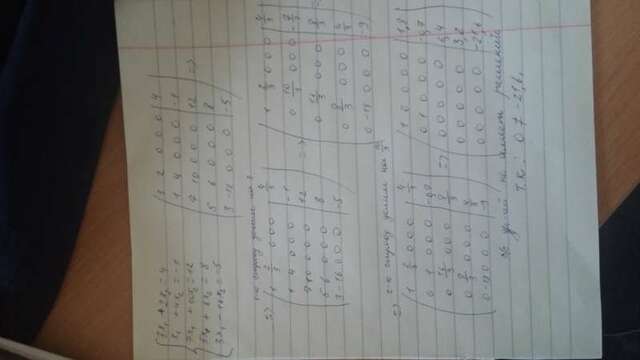 3x₁ + 2x₂ = 4
x₁ + 4x₂ = -1
7x₁ + 10x₂ = 12
5x₁ + 6x₂ = 8
3x₁ - 16x₂ = -5
3 2 0 0 0 | 4
1 4 0 0 0 | -1
7 10 0 0 0 | 12
5 6 0 0 0 | 8
3 -16 0 0 0 | -5
=>
1-ю строку делим на 3
=>
1 2/3 0 0 0 | 4/3
1 4 0 0 0 | -1
7 10 0 0 0 | 12
5 6 0 0 0 | 8
3 -16 0 0 0 | -5
=>
1 2/3 0 0 0 | 4/3
0 10/3 0 0 0 | -7/3
0 16/3 0 0 0 | 8/3
0 8/3 0 0 0 | 4/3
0 -18 0 0 0 | -9
=>
2-ю строку делим на 10/3
1 2/3 0 0 0 | 4/3
0 1 0 0 0 | -0,7
0 16/3 0 0 0 | 8/3
0 8/3 0 0 0 | 4/3
0 -18 0 0 0 | -9
=>
1 0 0 0 0 | 1,8
0 1 0 0 0 | -0,7
0 0 0 0 0 | 6,4
0 0 0 0 0 | 3,2
0 0 0 0 0 | -21,6
ур-ий не имеет решений
т.к.: 0 ≠ -21,6